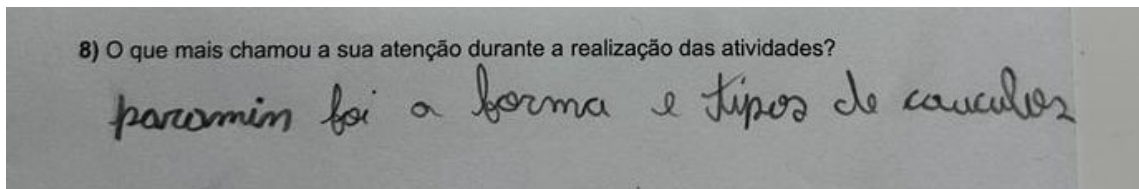 8) O que mais chamou a sua atenção durante a realização das atividades?
paramin foi a forma e tipos de cauculos